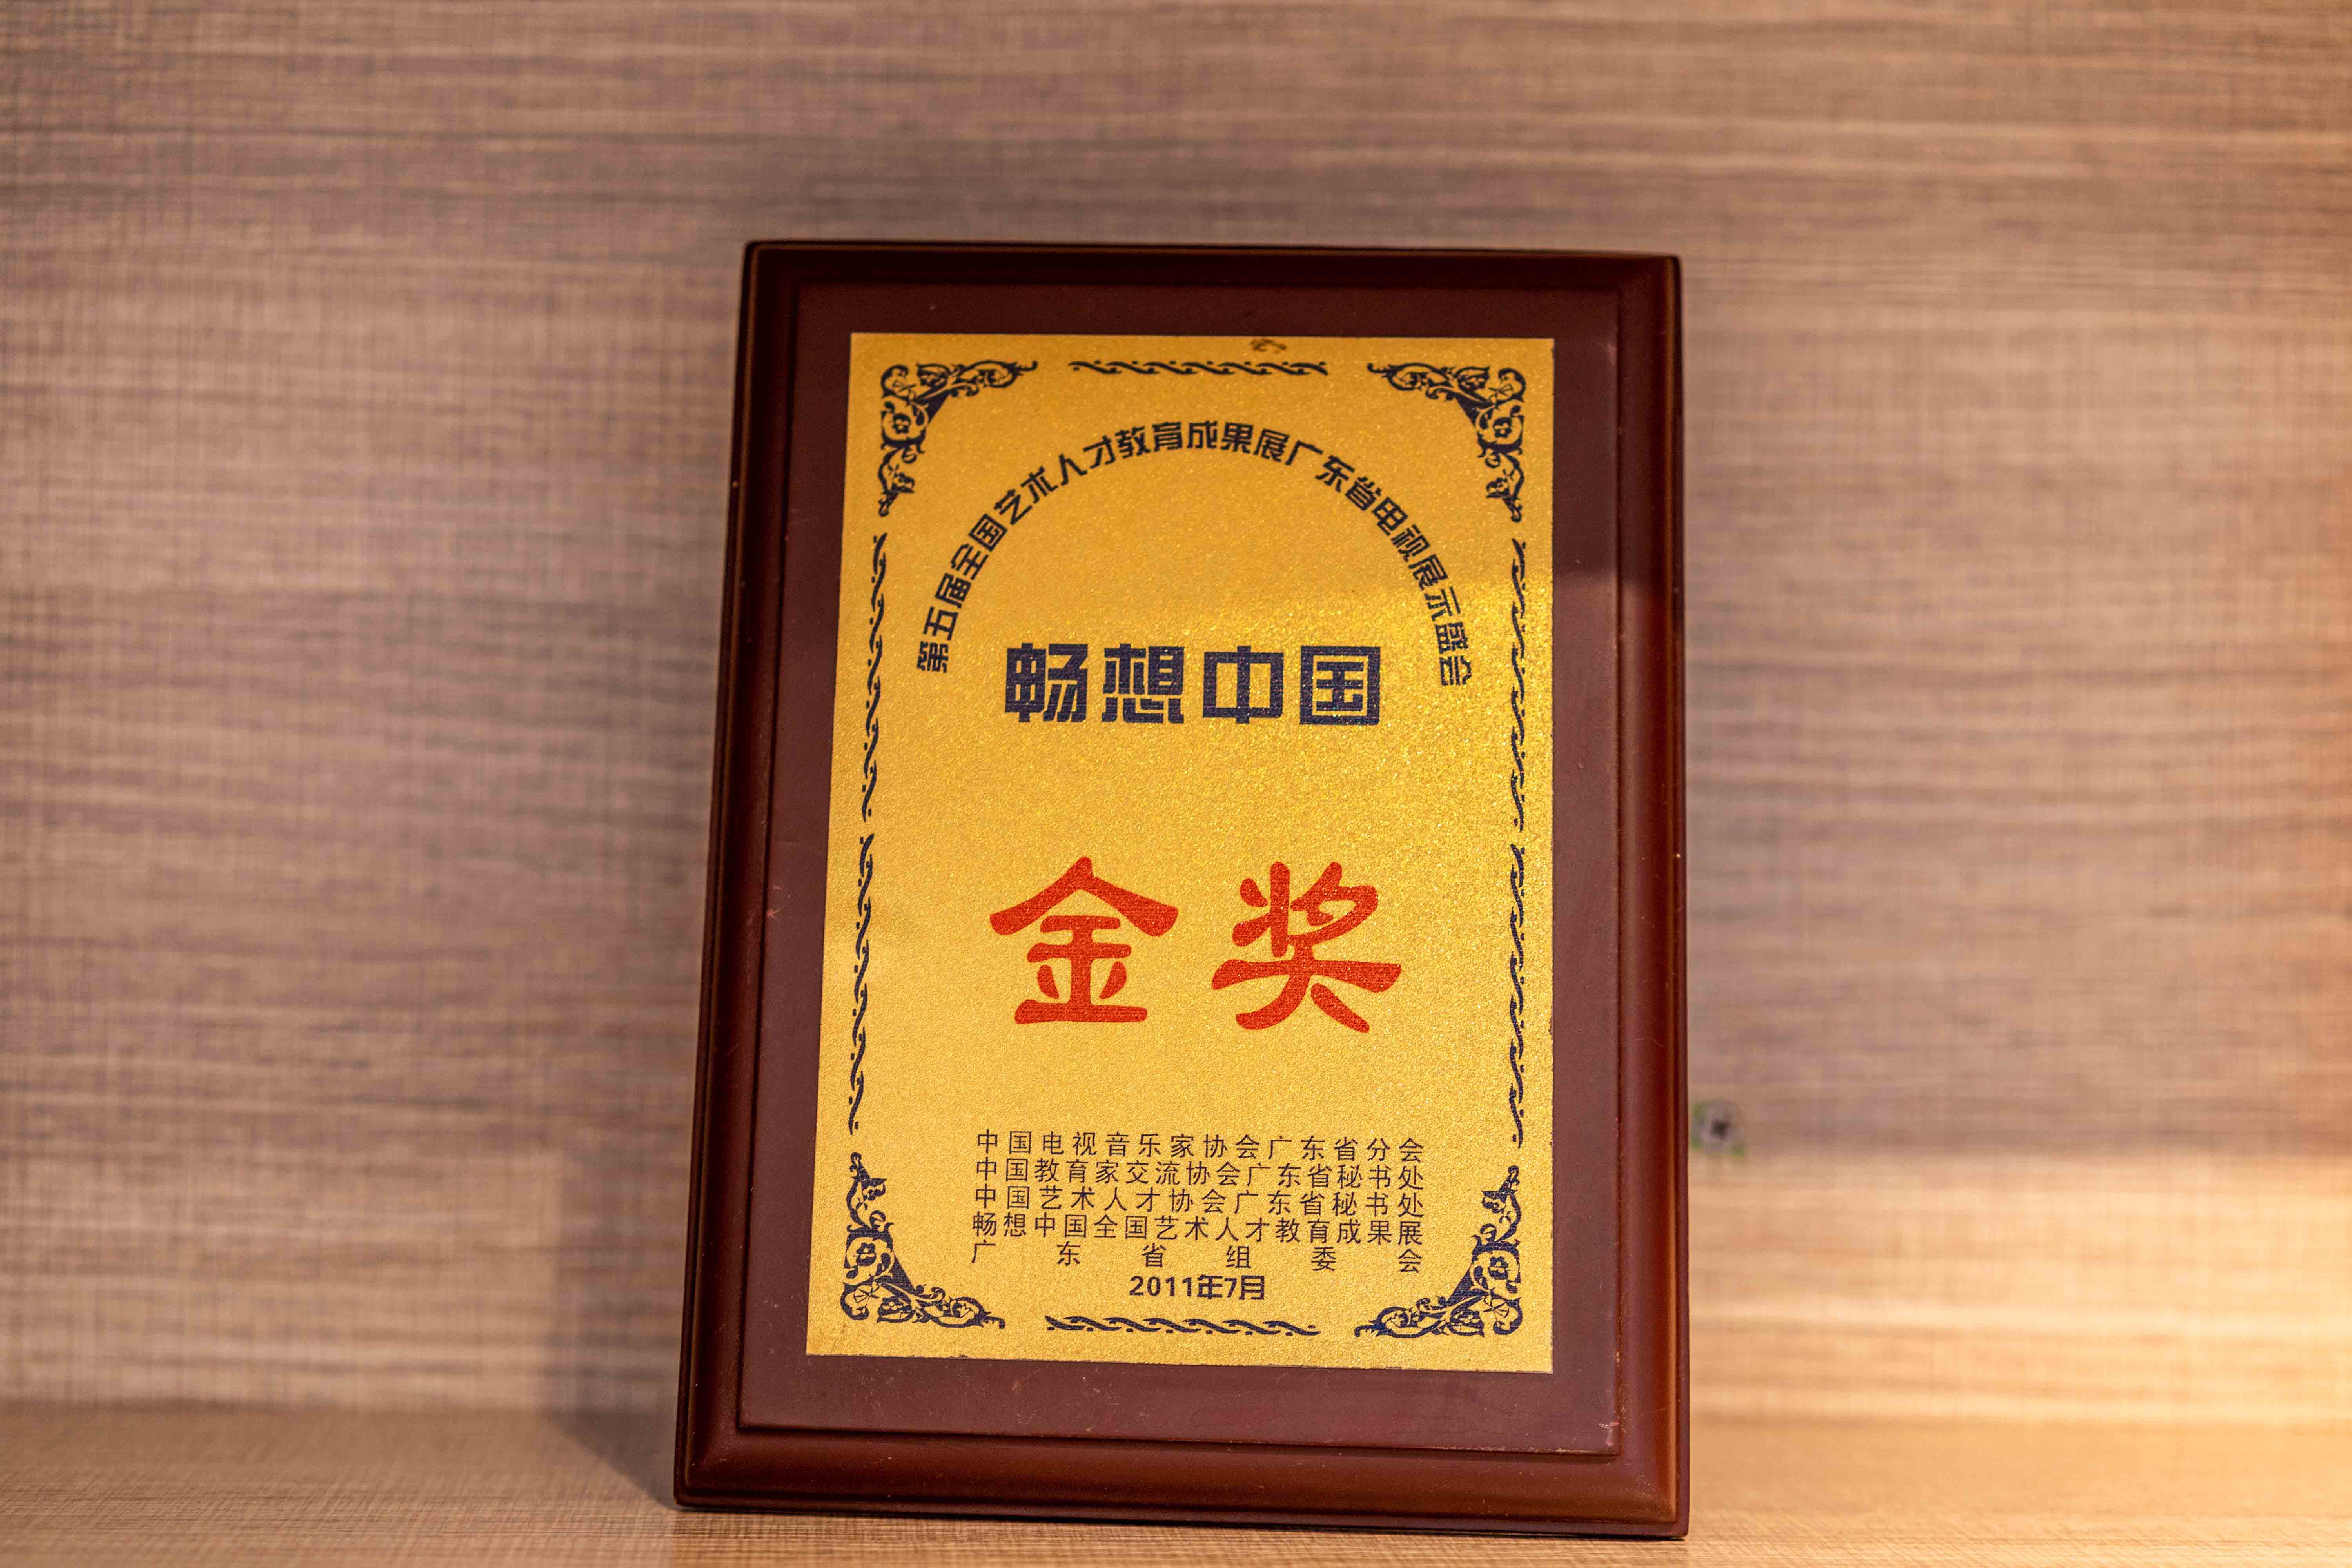 第五届全国艺术人才教育成果展广东省电视展示盛会
畅想中国
金奖
中国电视音乐家协会广东省分会
中国教育家交流协会广东省秘书处
中国艺术人才协会广东省秘书处
畅想中国全国艺术人才教育成果展
广东省组委会
2011年7月